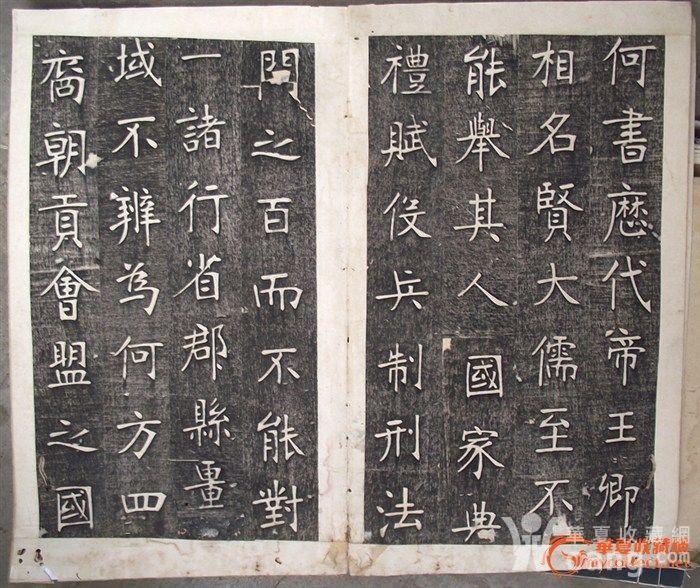 何書歷代帝王卿
相名賢大儒至不
能舉其人國家典
禮賦役兵制刑法
問之百而不能對
一諸行省郡縣畺
域不辨為何方四
裔朝貢會盟之國
華夏收藏網
華夏收藏網